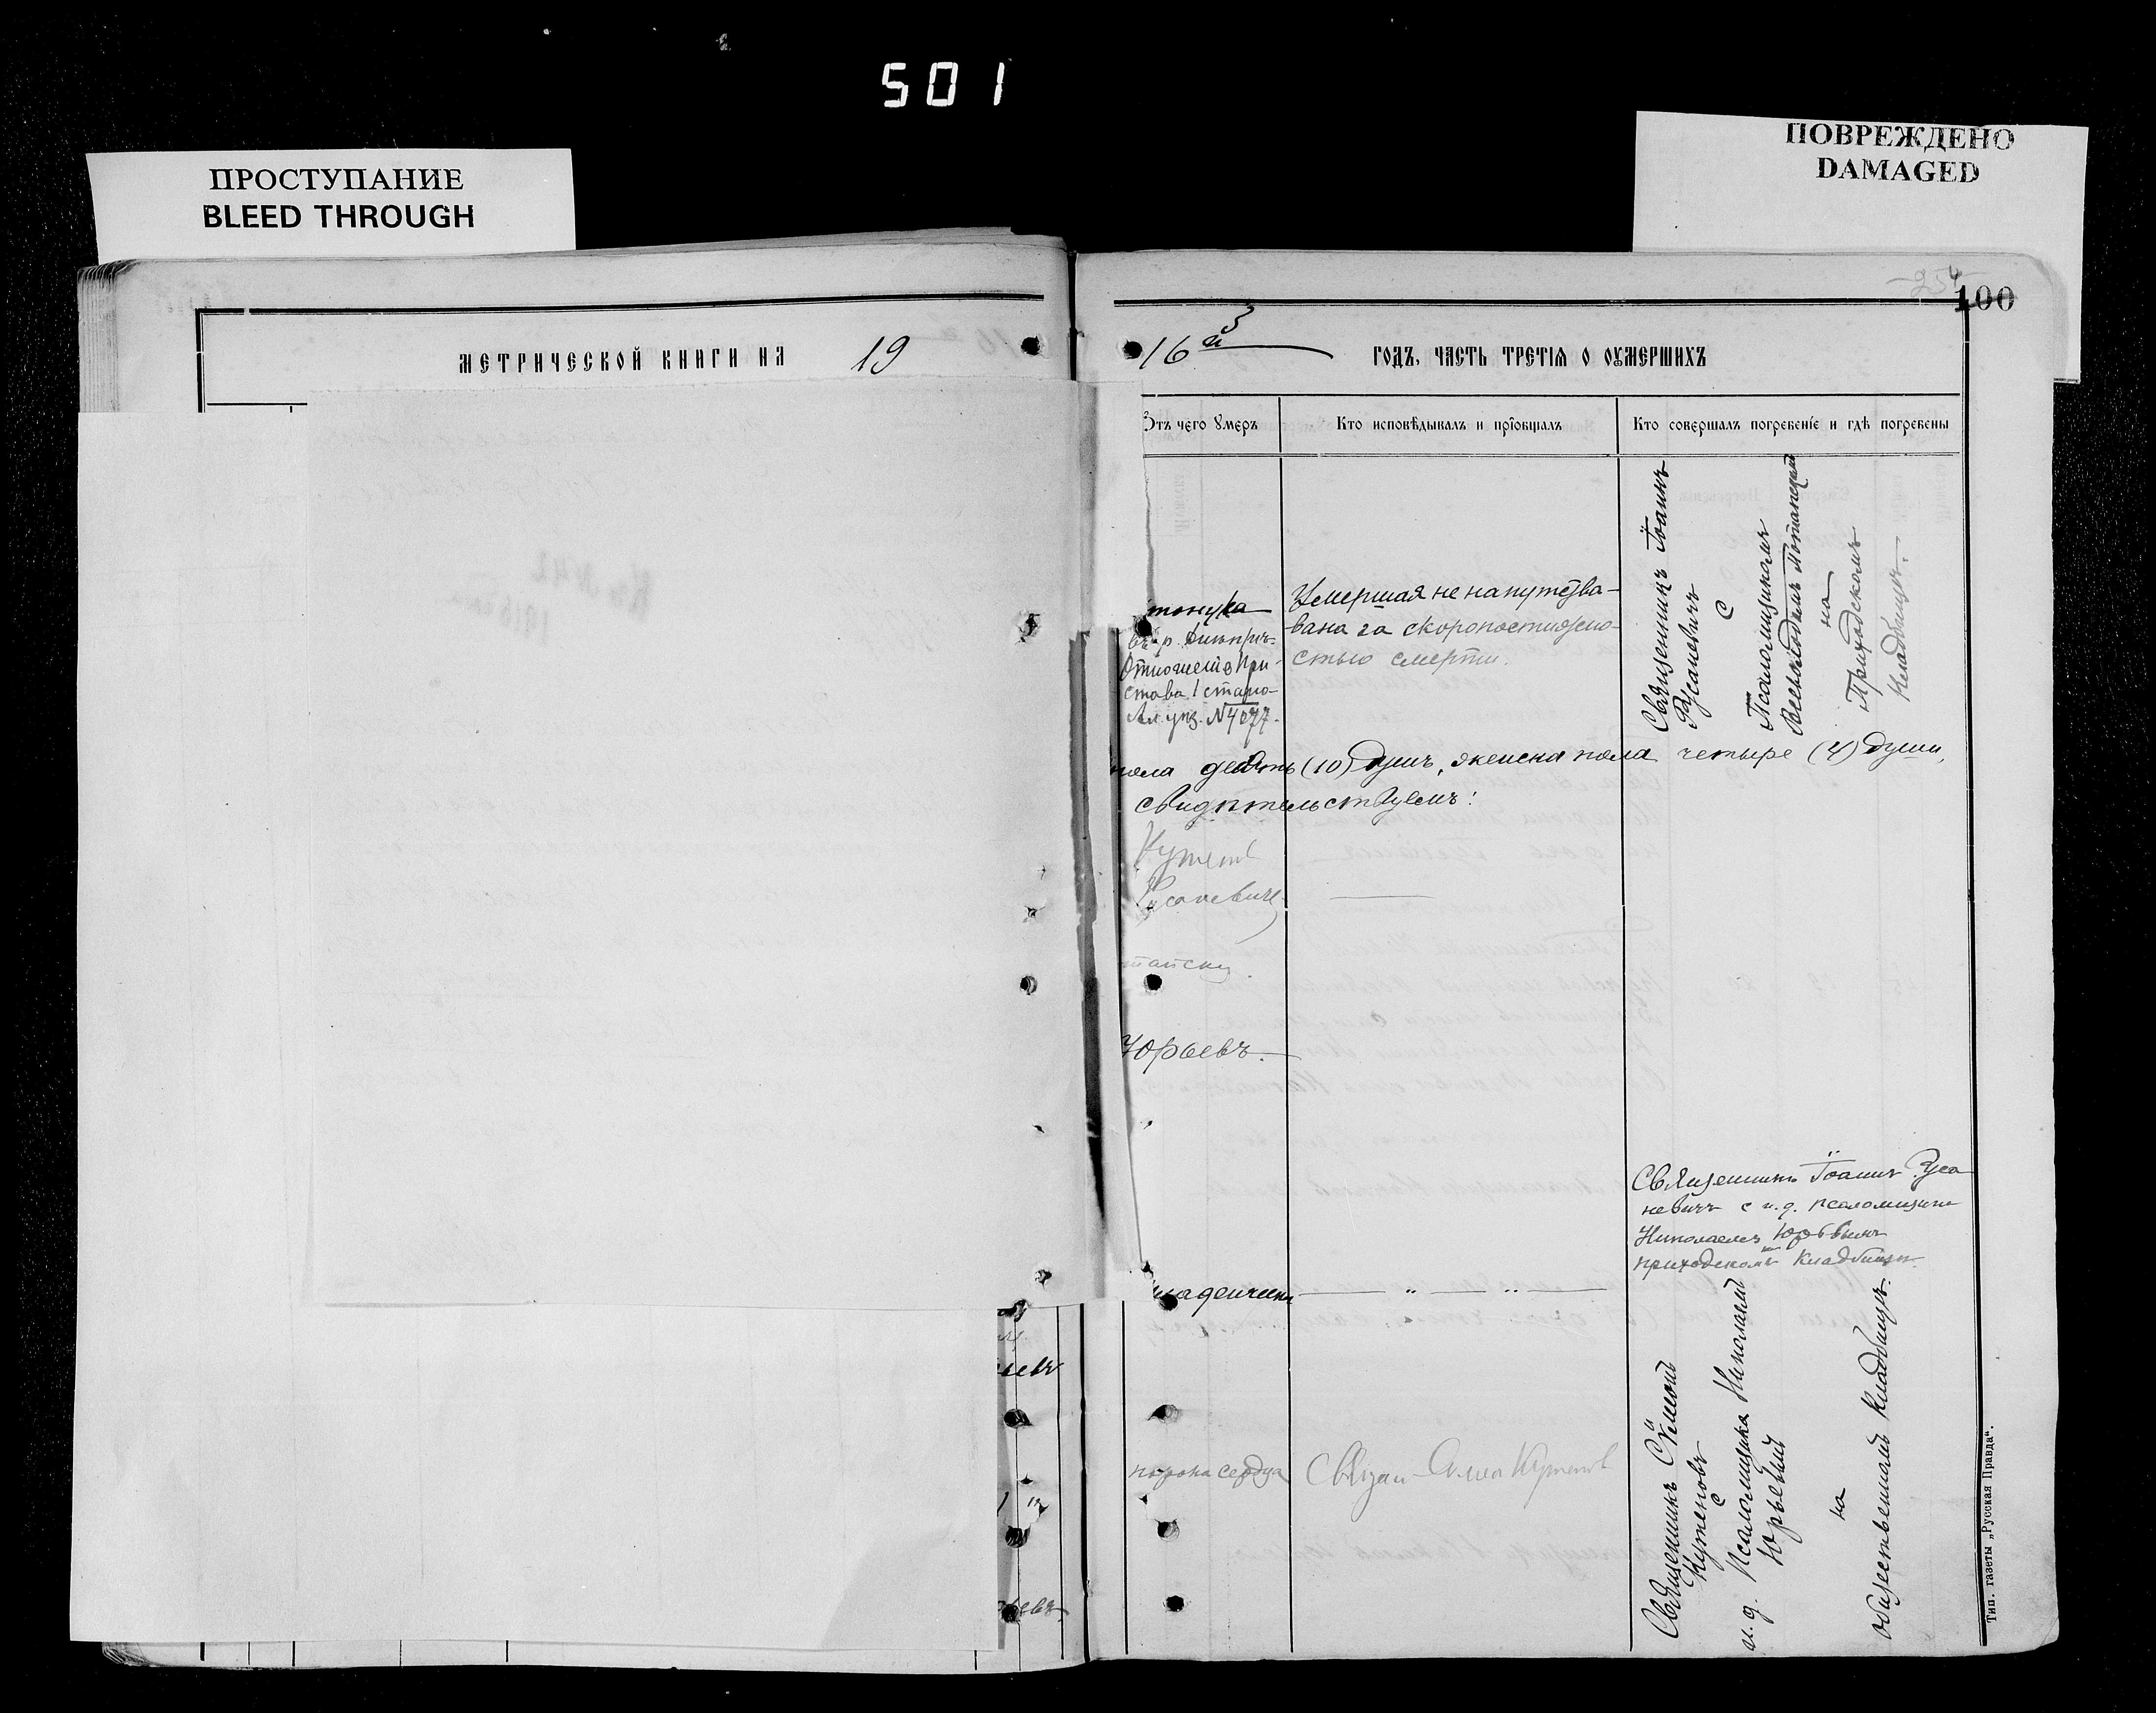 501
ПРОСТУПАНИЕ
BLEED THROUGH
ПОВРЕЖДЕНО
DAMAGED
100
МЕТРИЧЕСКОЙ КНИГИ НА 19
16й ГОДЪ, ЧАСТЬ ТРЕТІЯ О ОУМЕРШИХЪ
Ѿтъ чего ѹмеръ
Кто исповѣдывалъ и пріобщалъ
Кто совершалъ погребеніе и гдѣ погребены
тонула
въ р. Днѣпръ
Отношеніе При-
става 1 стана
№ 4077.
Умершая не напутство-
вана за скоропостижно-
стью смерти.
Священникъ Іоаннъ
Русаневичъ
с
Псаломщикомъ
Всеволодомъ
на
Приходскомъ
Кладбищѣ.
пола десять (10) душъ, женска пола четыре (4) души,
свидѣтельствуемъ:
Кутепов
Русаневичъ
Юрьевъ.
Священникъ Іоаннъ Руса
невичъ с и.д. псаломщика
Николаемъ Юрьевымъ
приходскомъ кладбищѣ.
младенчески
ьевъ
порока сердца
Кутепов
Священникъ Сѵмеон
Кутеповъ
с
и. д. Псаломщика Николаем
Юрьевым
на
общественном кладбищѣ.
Тип. газеты „Русская Правда“.